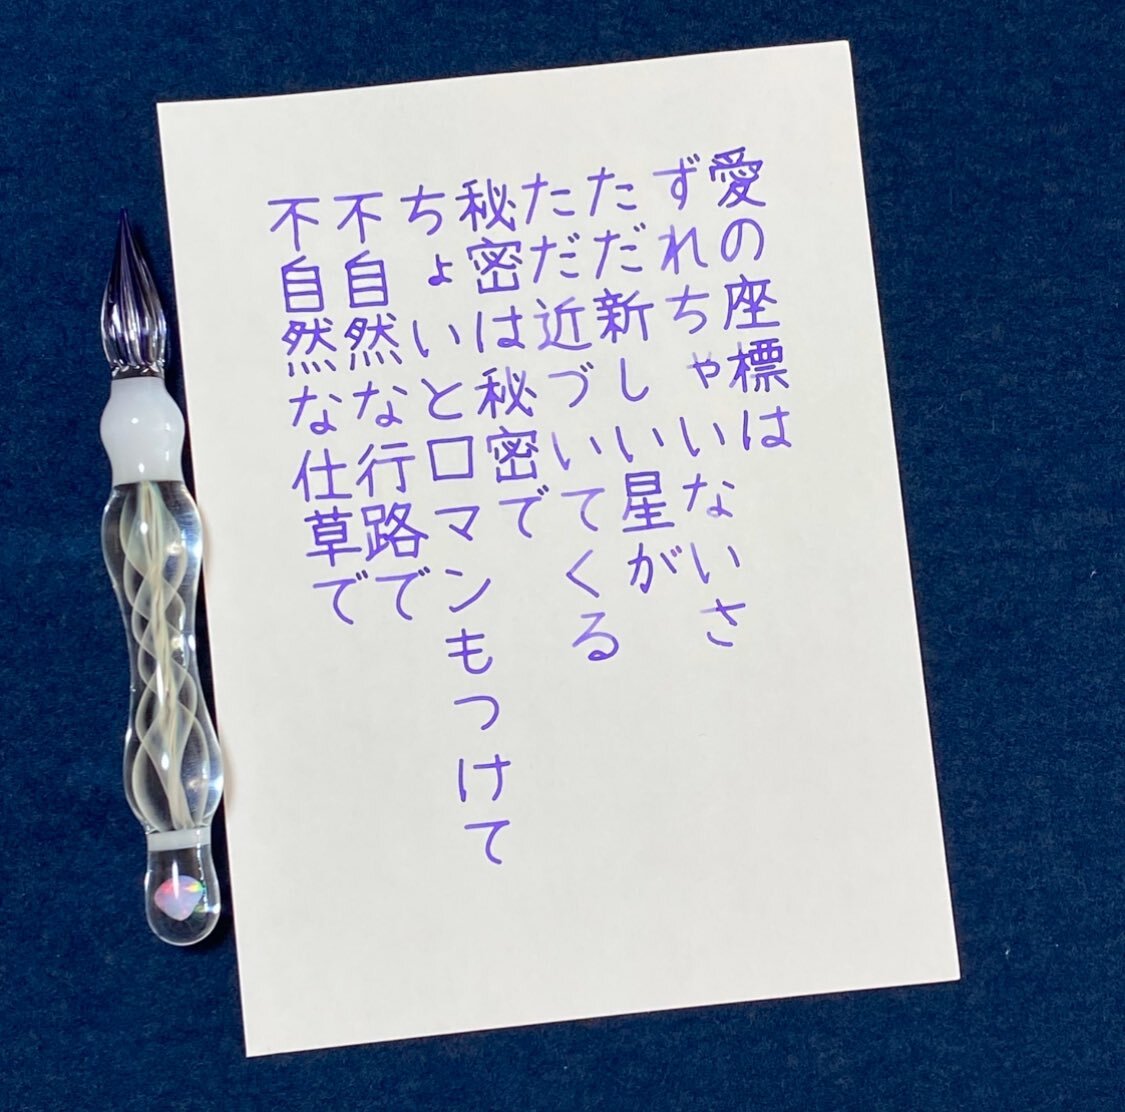 愛の座標は
ずれちゃいないさ
ただ新しい星が
ただ近づいてくる
秘密は秘密で
ちょいと口マンもつけて
不自然な行路で
不自然な仕草で